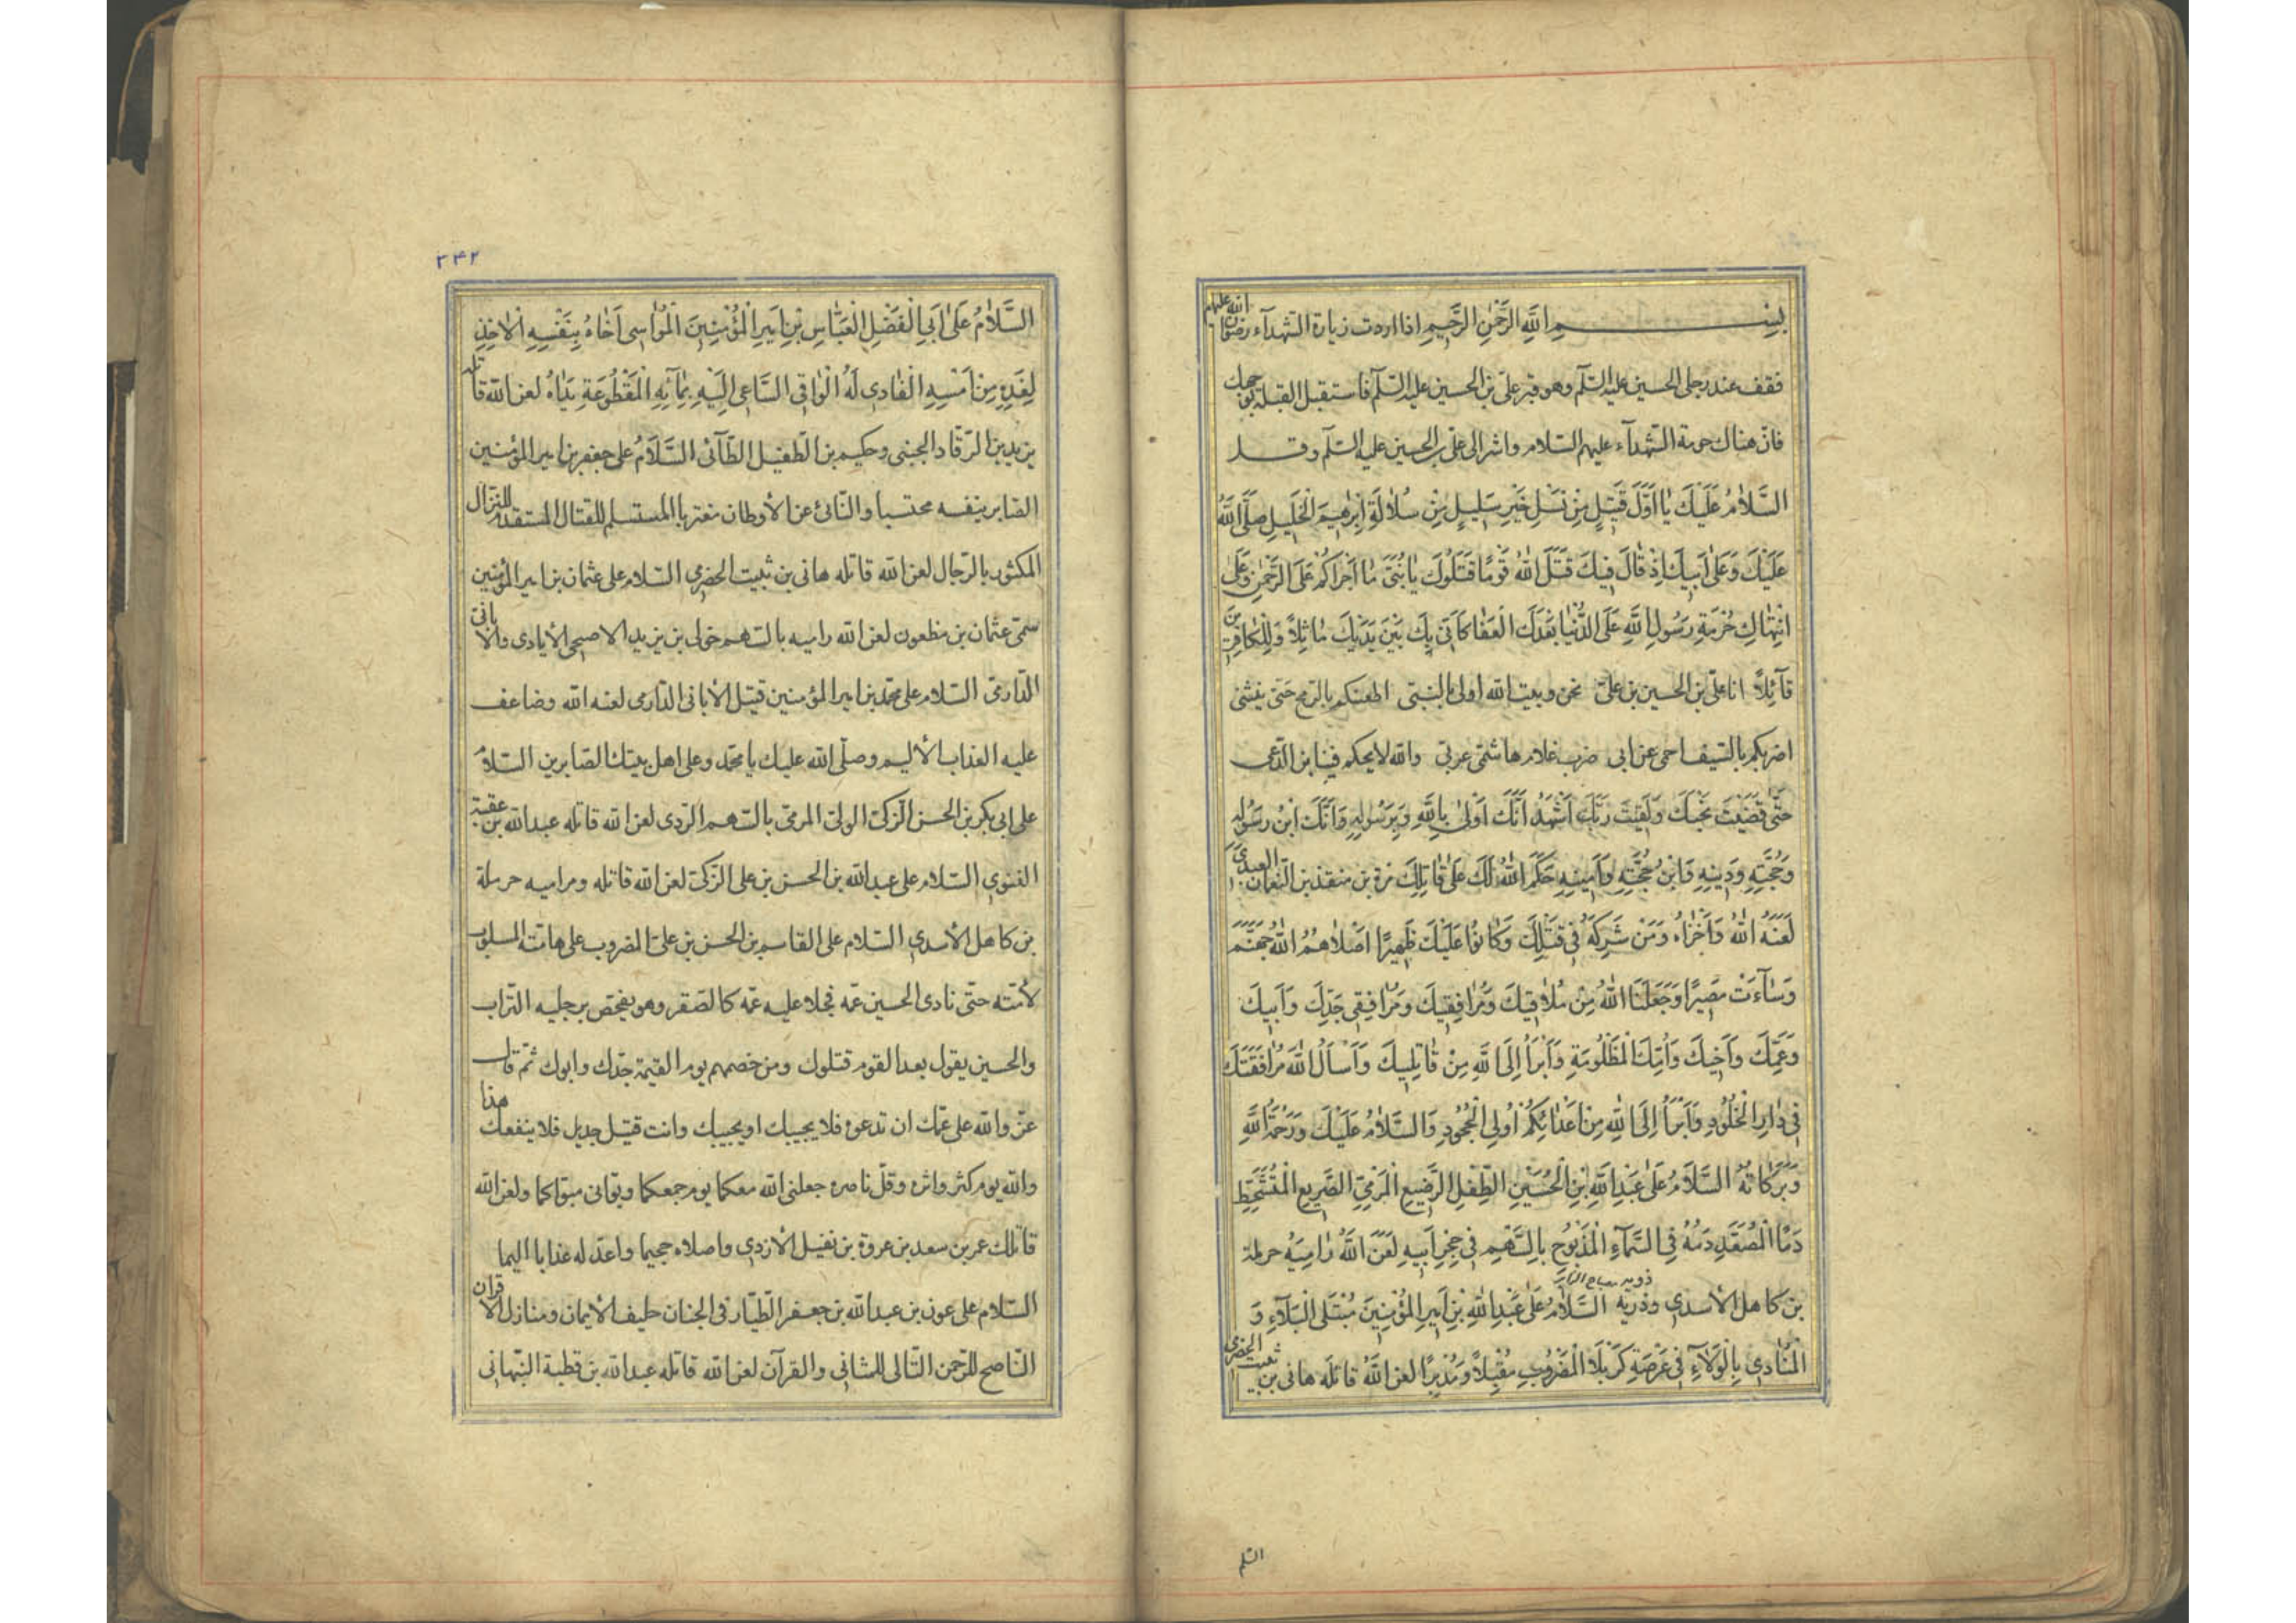 بسم الله الرحمن الرحيم اذا اردت زيارة الشهدآء رضوان الله عليهم
فقف عند رجلی الحسين عليه السلم وهو قبر علیّ بن الحسين عليه السلم فاستقبل القبلة بوجهك
فانّ هناك حومة الشهدآء عليهم السلام واشر الی علیّ بن الحسين عليه السلم وقـــل
السَّلٰامُ عَلَيْكَ يٰا اَوَّلَ قَتِيلٍ مِنْ نَسْلِ خَيْرِ سَلِيلٍ مِنْ سُلٰالَةِ اِبْرٰهِيمَ الْخَلِيلِ صَلَّی اللهُ
عَلَيْكَ وَعَلٰی اَبِيكَ اِذْ قٰالَ فِيكَ قَتَلَ اللهُ قَوْمًا قَتَلُوكَ يٰا بُنَیَّ مٰا اَجْرَاَكُمْ عَلَی الرَّحْمٰنِ وَعَلَی
انْتِهٰاكِ حُرْمَةِ رَسُولِ اللهِ عَلَی الدُّنْيٰا بَعْدَكَ الْعَفٰا كَاَنّی بِكَ بَيْنَ يَدَيْكَ مٰاثِلاً وَلِلْكٰافِرِينَ
قآئِلاً انا علیّ بن الحسين بن علیّ نحن وبيت الله اولی بالنبیّ اطعنكم بالرمح حتی ينثنی
اضربكم بالسّيف احمی عن ابی ضرب غلام هاشمیّ عربیّ والله لا يحكم فينا ابن الدّعی
حَتّٰی قَضَيْتَ نَحْبَكَ وَلَقِيتَ رَبَّكَ اَشْهَدُ اَنَّكَ اَوْلٰی بِاللهِ وَبِرَسُولِهِ وَاَنَّكَ ابْنُ رَسُولِهِ
وَحُجَّتِهِ وَدِينِهِ وَابْنُ حُجَّتِهِ وَاَمِينِهِ حَكَمَ اللهُ لَكَ عَلٰی قٰاتِلِكَ مرة بن منقذ بن النّعمان العبدی
لَعَنَهُ اللهُ وَاَخْزٰاهُ وَمَنْ شَرِكَهُ فِی قَتْلِكَ وَكٰانُوا عَلَيْكَ ظَهِيرًا اَصْلٰاهُمُ اللهُ جَهَنَّمَ
وَسٰاءَتْ مَصِيرًا وَجَعَلَنَا اللهُ مِنْ مُلٰاقِيكَ وَمُرٰافِقِيكَ وَمُرٰافِقِی جَدِّكَ وَاَبِيكَ
وَعَمِّكَ وَاَخِيكَ وَاُمِّكَ الْمَظْلُومَةِ وَاَبْرَاُ اِلَی اللهِ مِنْ قٰاتِلِيكَ وَاَسْاَلُ اللهَ مُرٰافَقَتَكَ
فِی دٰارِ الْخُلُودِ وَاَبْرَاُ اِلَی اللهِ مِنْ اَعْدٰائِكُمْ اُولِی الْجُحُودِ وَالسَّلٰامُ عَلَيْكَ وَرَحْمَةُ اللهِ
وَبَرَكٰاتُهُ السَّلَامُ عَلٰی عَبْدِ اللهِ بْنِ الْحُسَيْنِ الطِّفْلِ الرَّضِيعِ الْمَرْمِیِّ الصَّرِيعِ الْمُتَشَحِّطِ
دَمًا الْمُصَعَّدِ دَمُهُ فِی السَّمآءِ الْمَذْبُوحِ بِالسَّهْمِ فِی حِجْرِ اَبِيهِ لَعَنَ اللهُ رٰامِيَهُ حرملة
بن كاهل الأسدی وذريه السَّلٰامُ عَلٰی عَبْدِ اللهِ بْنِ اَمِيرِ الْمُؤْمِنِينَ مُبْتَلَی الْبَلآءِ وَ
الْمُنٰادِی بِالْوَلآءِ فِی عَرْصَةِ كَرْبَلَا الْمَضْرُوبِ مُقْبِلاً وَمُدْبِرًا لعن اللهُ قاتلَه هانی بن ثبيت الحضرمی
السّلم
٢٤٢
السَّلٰامُ عَلٰی اَبِی الْفَضْلِ الْعَبّٰاسِ بْنِ اَمِيرِ الْمُؤْمِنِينَ الْمُوٰاسِی اَخٰاهُ بِنَفْسِهِ الْاٰخِذِ
لِغَدِهِ مِنْ اَمْسِهِ الْفٰادِی لَهُ الْوٰاقِی السَّاعِی اِلَيْهِ بِمٰآئِهِ الْمَقْطُوعَةِ يَدٰاهُ لعن الله قاتله
يزيد بن الرّقاد الجنبی وحكيم بن الطّفيل الطّآئیّ السَّلَامُ علی جعفر بن امير المؤمنين
الصّابر بنفسه محتسبا والنّائی عن الأوطان مغتربا المستسلم للقتال المستقدم للنزال
المكثور بالرّجال لعن الله قاتله هانی بن ثبيت الحضرمی السّلام علی عثمان بن امير المؤمنين
سمیّ عثمان بن مظعون لعن الله راميه بالسّهم خولی بن يزيد الاصبحی الأيادی والابانیّ
الدّارمیّ السّلام علی محمّد بن امير المؤمنين قتيل الأبانی الدّارمی لعنه الله وضاعف
عليه العذاب الأليم وصلّی الله عليك يا محمّد وعلی اهل بيتك الصّابرين السّلامُ
علی ابی بكر بن الحسن الزكیّ الولیّ المرمیّ بالسّهم الرّدی لعن الله قاتله عبد الله بن عقبة
الغنوی السّلام علی عبد الله بن الحسن بن علی الزّكیّ لعن الله قاتله وراميه حرملة
بن كاهل الأسدی السّلام علی القاسم بن الحسن بن علیّ المضروب علی هامته المسلوب
لأمته حتّی نادی الحسين عمّه فجلا عليه عمّه كالصّقر وهو يفحص برجليه التّراب
والحسين يقول بعدا لقوم قتلوك ومن خصمهم يوم القيمة جدّك وابوك ثمّ قال
عزّ والله علی عمّك ان تدعوه فلا يجيبك او يجيبك وانت قتيل جديل فلا ينفعك هذا
والله يوم كثر واتره وقلّ ناصره جعلنی الله معكما يوم جمعكما وبوّانی مبوّاكما ولعن الله
قاتلك عمر بن سعد بن عروة بن نفيل الأزدی واصلاه جحيما واعدّ له عذابا اليما
السّلام علی عون بن عبد الله بن جعفر الطّيّار فی الجنان حليف الأيمان ومنازل الاقران
النّاصح للرّحمن التّالی للمثانی والقرآن لعن الله قاتله عبد الله بن قطبة النّبهانی